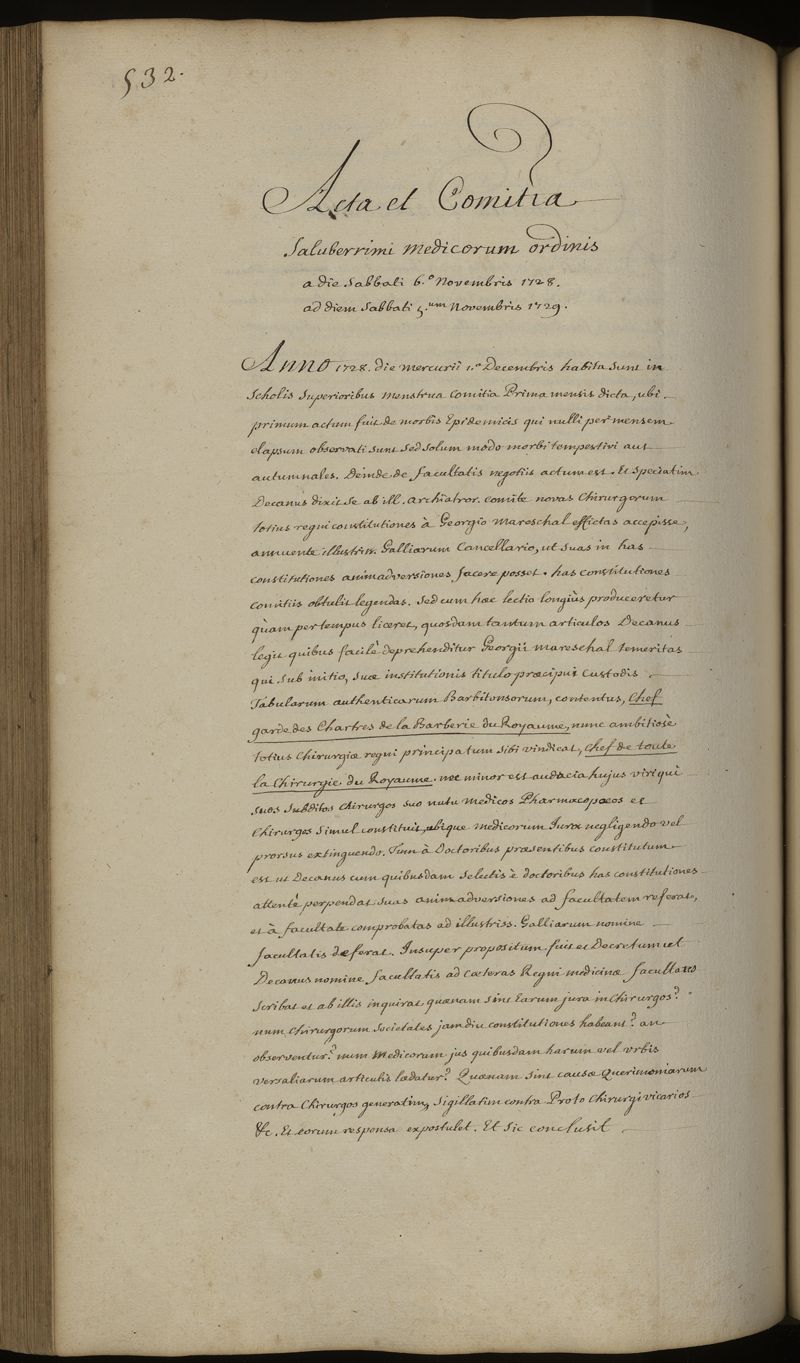 532.
Acta et Comitia
Saluberrimi Medicorum ordinis
a die Sabbati 6.° Novembris 1728.
ad diem Sabbati 5.um Novembris 1729.
Anno 1728. die mercurii 1.a Decembris habita sunt in
scholis superioribus menstrua comitia Prima mensis dicta, ubi
primum actum fuit de morbis Epidemicis qui nulli per mensem
elapsum observati sunt sed solum modo morbi tempestivi aut
autumnales. Deinde de facultatis negotiis actum est. Et speciatim
Decanus dixit se ab ill. archiatror. comite novas Chirurgorum
totius regni constitutiones à Georgio Mareschal effictas accepisse,
annuente illustriss. Galliarum Cancellario, ut suas in has
constitutiones animadversiones facere posset. has constitutiones
comitiis obtulit legendas. sed cum haec lectio longiùs produceretur
quàm per tempus liceret, quosdam tantum articulos Decanus
legit quibus facilè deprehenditur Georgii Mareschal temeritas
qui sub initio, suae institutionis titulo praecipui Custodis
Tabularum authenticarum Barbitonsorum, contentus, Chef
garde des Chartres de la Barberie du Royaume, nunc ambitiosè
totius chirurgiae regni principatum sibi vindicat, Chef de toute
la Chirurgie du Royaume. nec minor est audacia hujus viri qui
suos subditos chirurgos suo nutu Medicos Pharmacopaeos et
Chirurgos simul constituit, ubique medicorum Jura negligendo vel
prorsus extinguendo. Tum à Doctoribus praesentibus constitutum
est ut Decanus cum quibusdam selectis è doctoribus has constitutiones
attentè perpendat suas animadversiones ad facultatem referat,
et à facultate comprobatas ad illustriss. Galliarum nomine
facultatis deferat. Insuper propositum fuit et Decretum ut
Decanus nomine facultatis ad caeteras Regni medicinae facultates
scribat et ab illis inquirat quaenam sint earum jura in Chirurgos?
num chirurgorum societates jamdiu constitutiones habeant? an
observentur? num Medicorum jus quibusdam harum vel
versaliarum articulis laedatur? Quaenam sint causae Querimoniarum
contra Chirurgos generatim, sigillatim contra Proto Chirurgi vicarios
&c. Et eorum responsa expostulet. Et sic conclusit